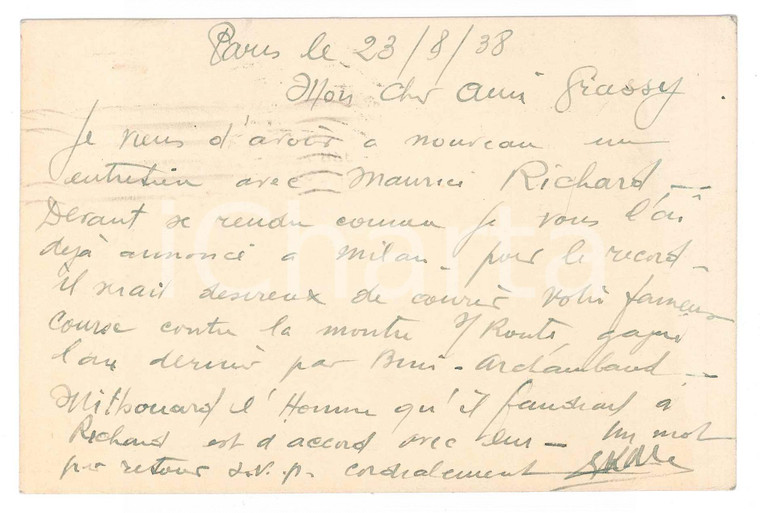 Paris le 23/8/38
Mon cher ami Grassy
Je viens d'avoir a nouveau un
entretien avec Maurice Richard —
Devant se rendre comme je vous l'ai
dejà annoncé a Milan - pour le record -
il serait desireux de courir votre fameuse
Course contre la montre s/ Route, gagné
l'an dernier par Bini - Archambaud -
Mithouard l'Homme qu'il faudrait à
Richard est d'accord avec lui - Un mot
par retour s.v.p. cordialement
iCharta